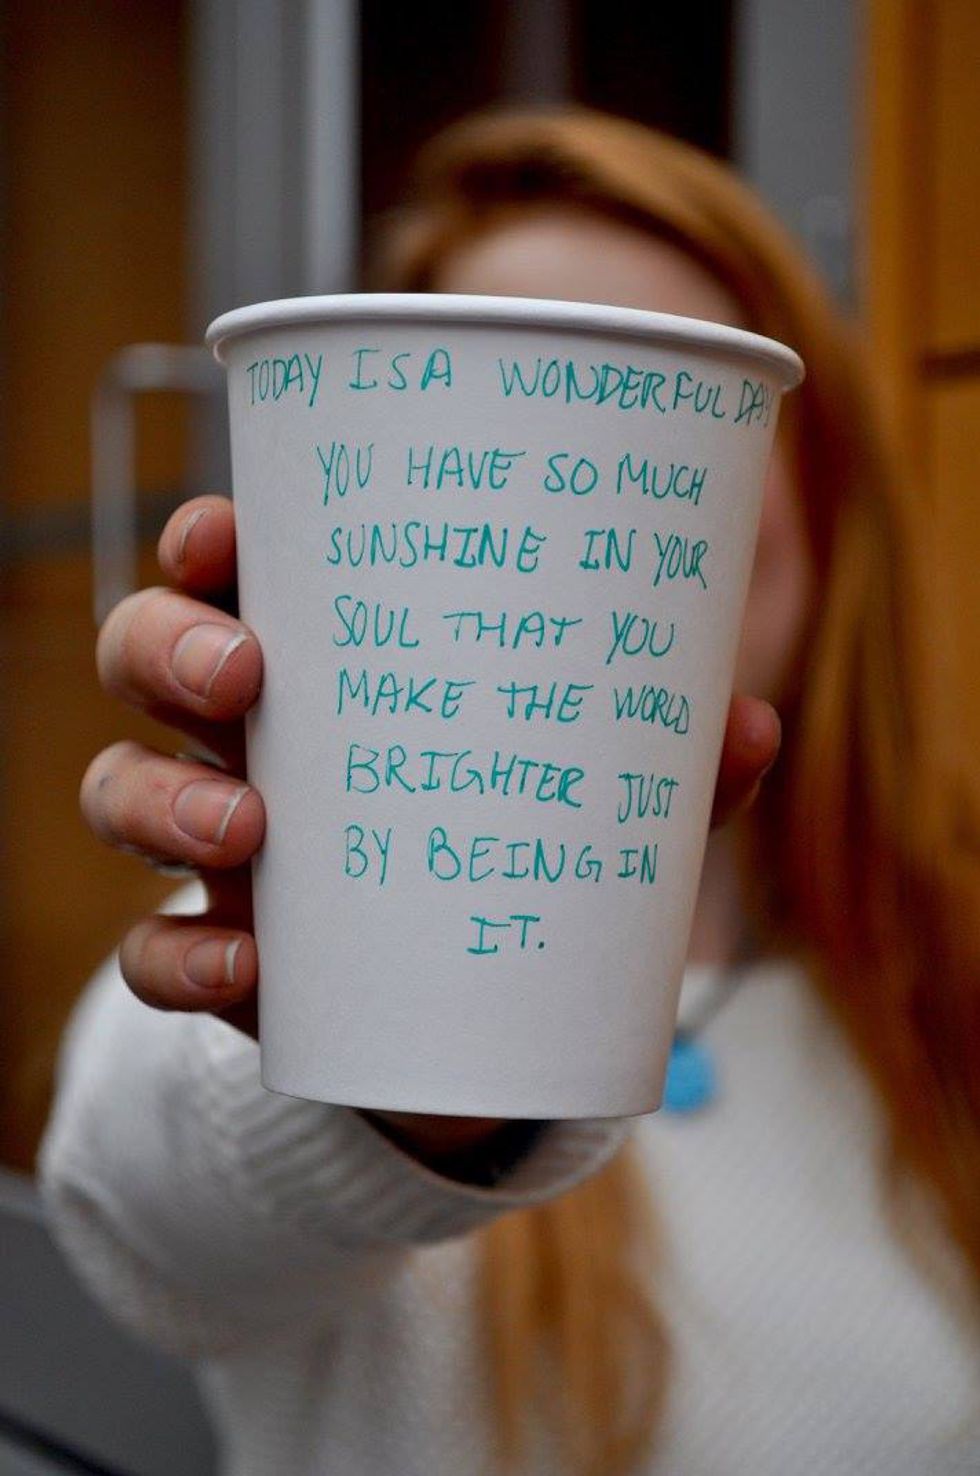 TODAY IS A WONDERFUL DAY
YOU HAVE SO MUCH
SUNSHINE IN YOUR
SOUL THAT YOU
MAKE THE WORLD
BRIGHTER JUST
BY BEING IN
IT.